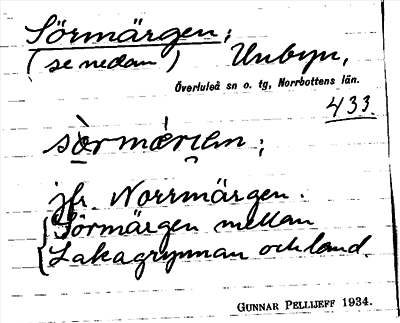 Sörmärgen;
(se nedan) Unbyn,
Överluleå sn o. tg, Norrbottens län.
433.
jfr Norrmärgen.
Sörmärgen mellan
Lakagrynnan och land.
GUNNAR PELLIJEFF 1934.